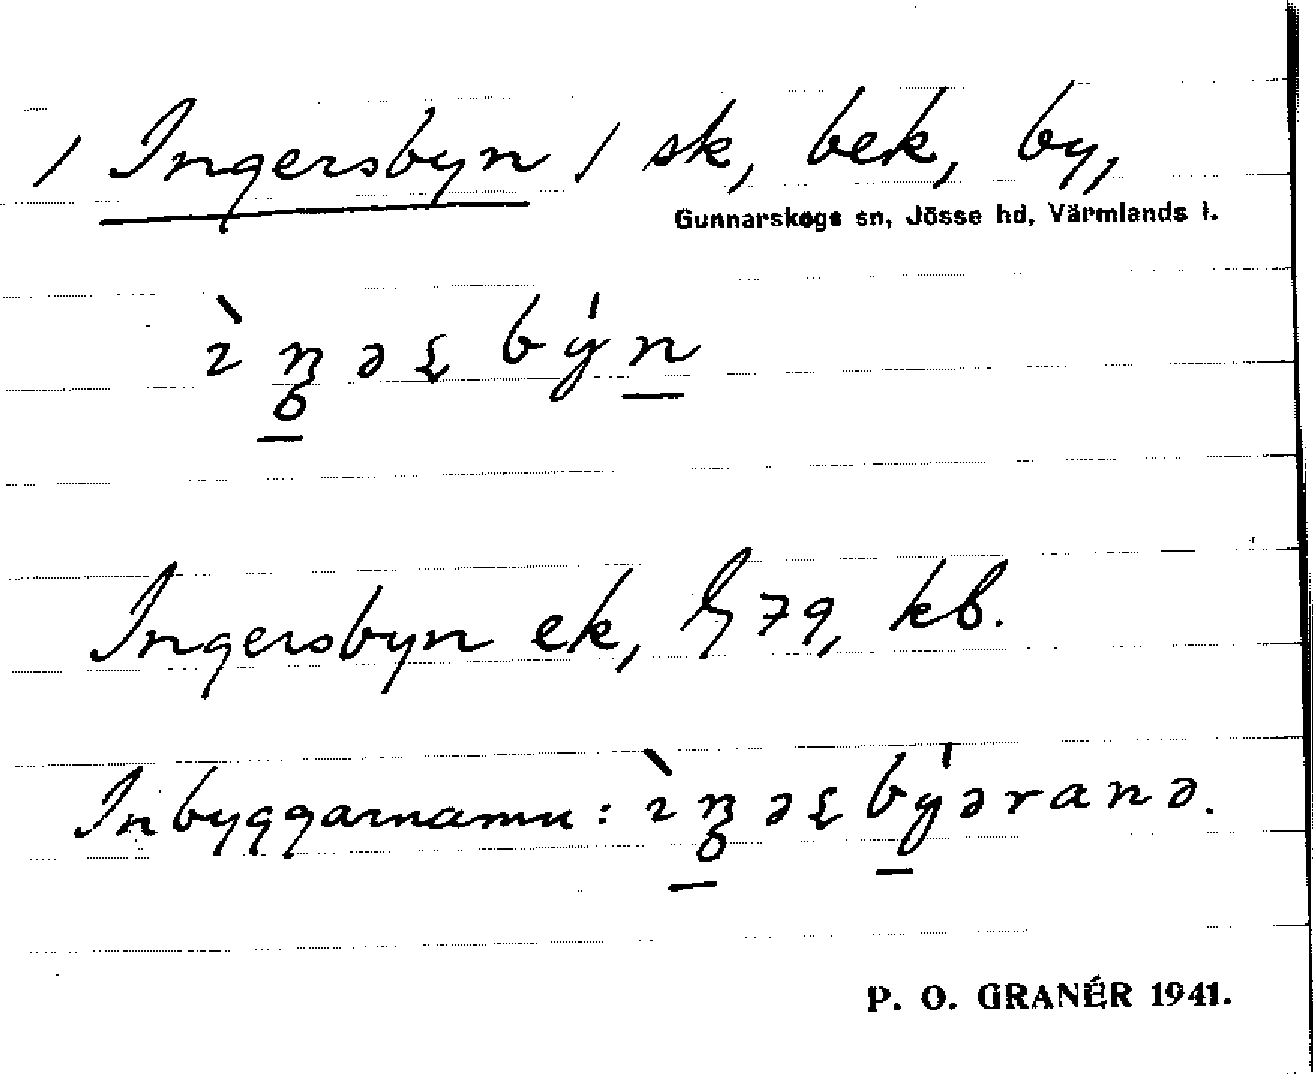 / Ingersbyn / sk, bek, by,
Gunnarskogs sn, Jösse hd, Värmlands l.
Ingersbyn ek, 79, kb.
Inbyggarnamn:
P. O. GRANÉR 1941.